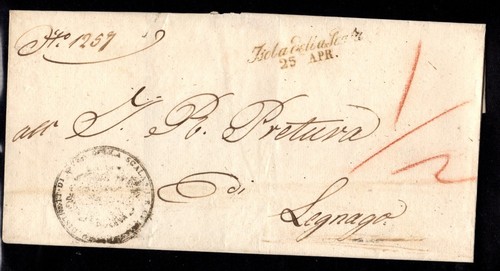 No 1257
Isola della Scala
25 APR.
all' I. R. Pretura
di
Legnago.
1/2